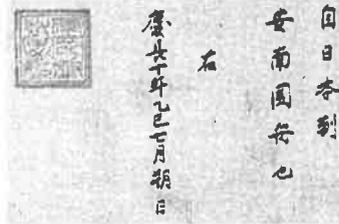 自日本到
安南國舟也
右
慶長十年乙巳七月朔日